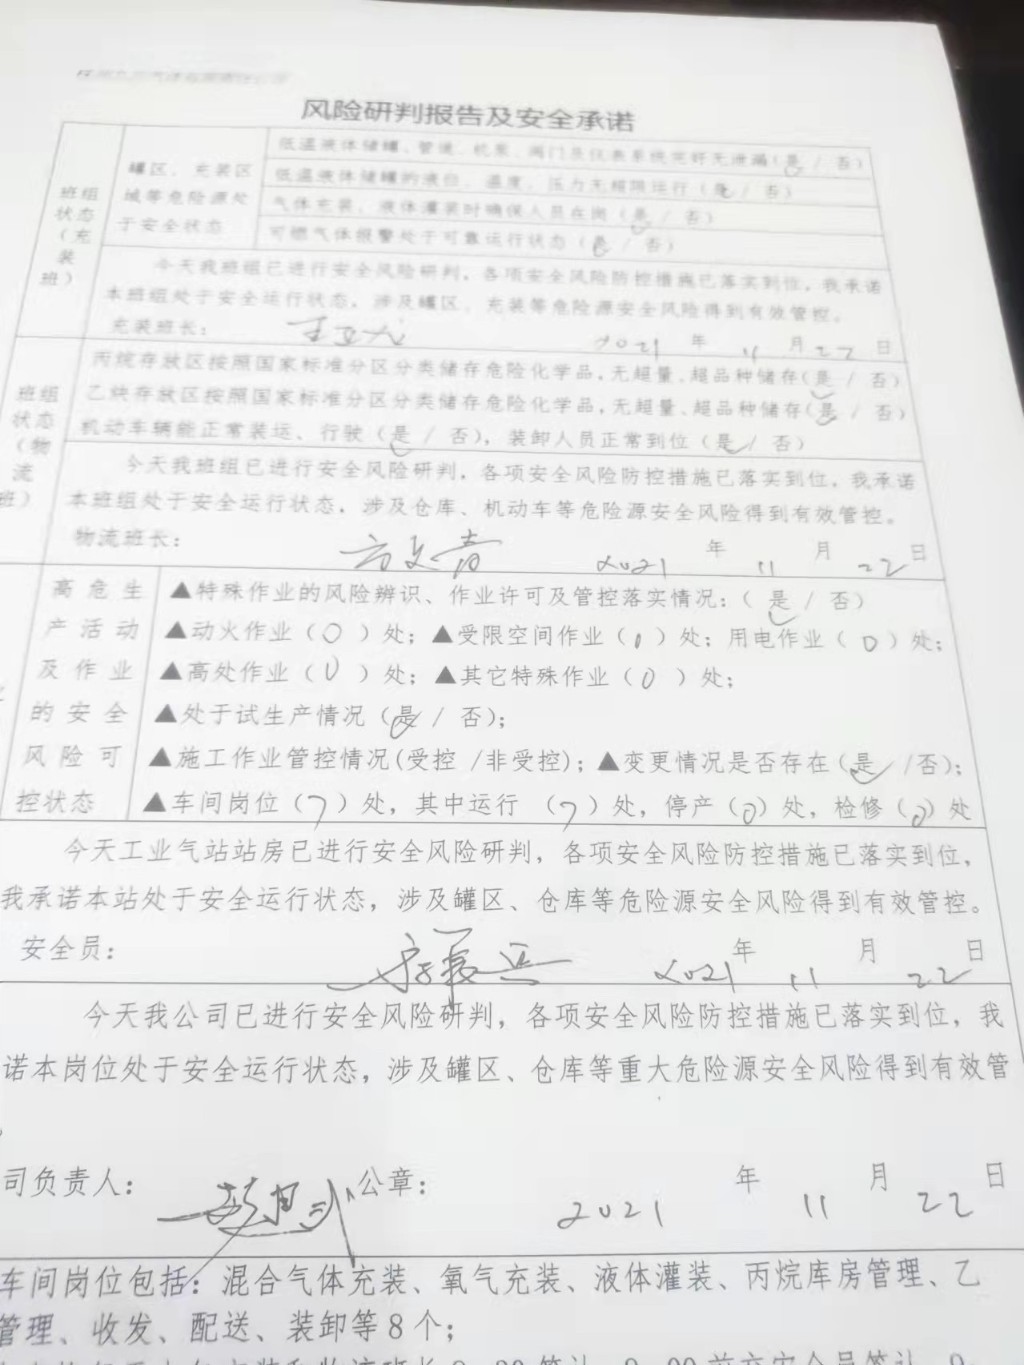 风险研判报告及安全承诺
班组状态（充装班）
罐区、充装区域等危险源处于安全状态
低温液体储罐、管道、机泵、阀门及仪表系统完好无泄漏（是 / 否）
低温液体储罐的液位、温度、压力无超限运行（是 / 否）
气体充装、液体灌装时确保人员在岗（是 / 否）
可燃气体报警处于可靠运行状态（是 / 否）
今天我班组已进行安全风险研判，各项安全风险防控措施已落实到位，我承诺
本班组处于安全运行状态，涉及罐区、充装等危险源安全风险得到有效管控。
充装班长： 2021 年 11 月 22 日
班组状态（物流班）
丙烷存放区按照国家标准分区分类储存危险化学品，无超量、超品种储存（是 / 否）
乙炔存放区按照国家标准分区分类储存危险化学品，无超量、超品种储存（是 / 否）
机动车辆能正常装运、行驶（是 / 否），装卸人员正常到位（是 / 否）
今天我班组已进行安全风险研判，各项安全风险防控措施已落实到位，我承诺
本班组处于安全运行状态，涉及仓库、机动车等危险源安全风险得到有效管控。
物流班长： 方文青 2021 年 11 月 22 日
高危生产活动及作业的安全风险可控状态
▲特殊作业的风险辨识、作业许可及管控落实情况：（是 / 否）
▲动火作业（0）处；▲受限空间作业（0）处；用电作业（0）处；
▲高处作业（0）处；▲其它特殊作业（0）处；
▲处于试生产情况（是 / 否）；
▲施工作业管控情况(受控 /非受控)；▲变更情况是否存在（是 /否）；
▲车间岗位（7）处，其中运行（7）处，停产（0）处，检修（0）处
今天工业气站站房已进行安全风险研判，各项安全风险防控措施已落实到位，
我承诺本站处于安全运行状态，涉及罐区、仓库等危险源安全风险得到有效管控。
安全员： 2021 年 11 月 22 日
今天我公司已进行安全风险研判，各项安全风险防控措施已落实到位，我
诺本岗位处于安全运行状态，涉及罐区、仓库等重大危险源安全风险得到有效管
司负责人： 公章： 2021 年 11 月 22 日
车间岗位包括：混合气体充装、氧气充装、液体灌装、丙烷库房管理、乙
管理、收发、配送、装卸等8个；